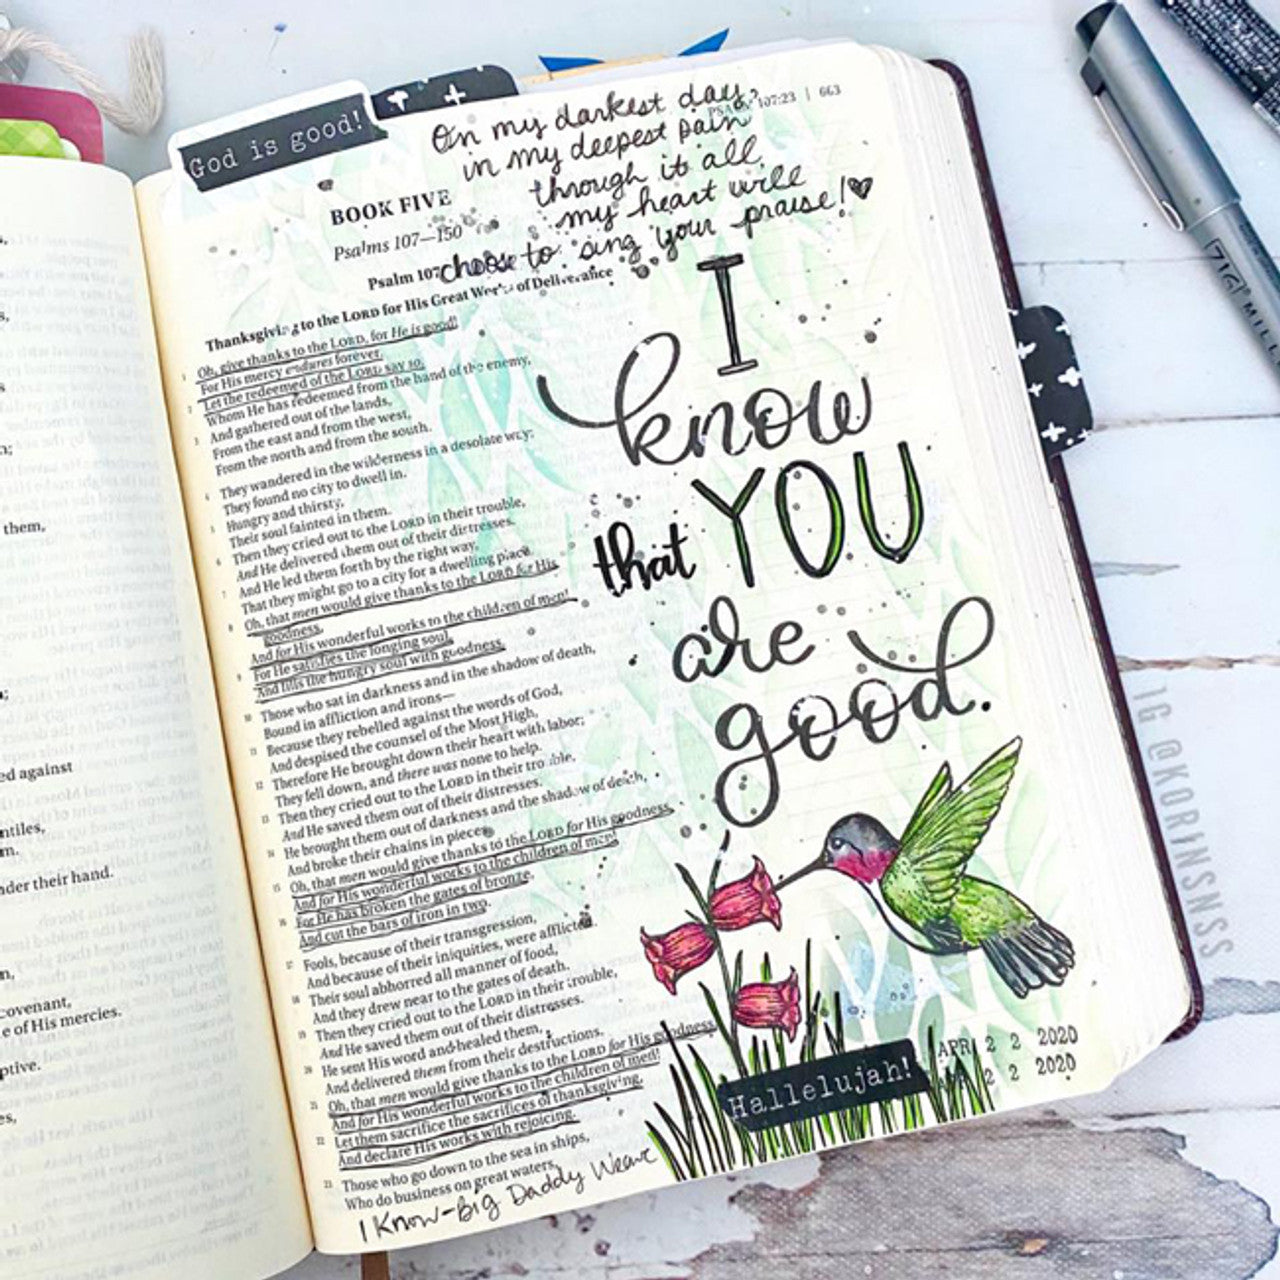 God is good!
PSALM 107:23 | 663
On my darkest day,
in my deepest pain
through it all,
my heart will
choose to sing your praise!
BOOK FIVE
Psalms 107—150
Psalm 107
Thanksgiving to the LORD for His Great Works of Deliverance
1 Oh, give thanks to the LORD, for He is good!
For His mercy endures forever.
2 Let the redeemed of the LORD say so,
Whom He has redeemed from the hand of the enemy,
3 And gathered out of the lands,
From the east and from the west,
From the north and from the south.
4 They wandered in the wilderness in a desolate way;
They found no city to dwell in.
5 Hungry and thirsty,
Their soul fainted in them.
6 Then they cried out to the LORD in their trouble,
And He delivered them out of their distresses.
7 And He led them forth by the right way,
That they might go to a city for a dwelling place.
8 Oh, that men would give thanks to the LORD for His
goodness,
And for His wonderful works to the children of men!
9 For He satisfies the longing soul,
And fills the hungry soul with goodness.
10 Those who sat in darkness and in the shadow of death,
Bound in affliction and irons—
11 Because they rebelled against the words of God,
And despised the counsel of the Most High,
12 Therefore He brought down their heart with labor;
They fell down, and there was none to help.
13 Then they cried out to the LORD in their trouble,
And He saved them out of their distresses.
14 He brought them out of darkness and the shadow of death,
And broke their chains in pieces.
15 Oh, that men would give thanks to the LORD for His goodness,
And for His wonderful works to the children of men!
16 For He has broken the gates of bronze,
And cut the bars of iron in two.
17 Fools, because of their transgression,
And because of their iniquities, were afflicted.
18 Their soul abhorred all manner of food,
And they drew near to the gates of death.
19 Then they cried out to the LORD in their trouble,
And He saved them out of their distresses.
20 He sent His word and healed them,
And delivered them from their destructions.
21 Oh, that men would give thanks to the LORD for His goodness,
And for His wonderful works to the children of men!
22 Let them sacrifice the sacrifices of thanksgiving,
And declare His works with rejoicing.
23 Those who go down to the sea in ships,
Who do business on great waters,
I Know-Big Daddy Weave
I
know
that YOU
are
good.
Hallelujah!
APR 2 2 2020
2 2 2020
them,
ed against
ntiles,
m.
nder their hand.
covenant,
e of His mercies.
ptive.
ZIG MILL
IG @KORINSNSS